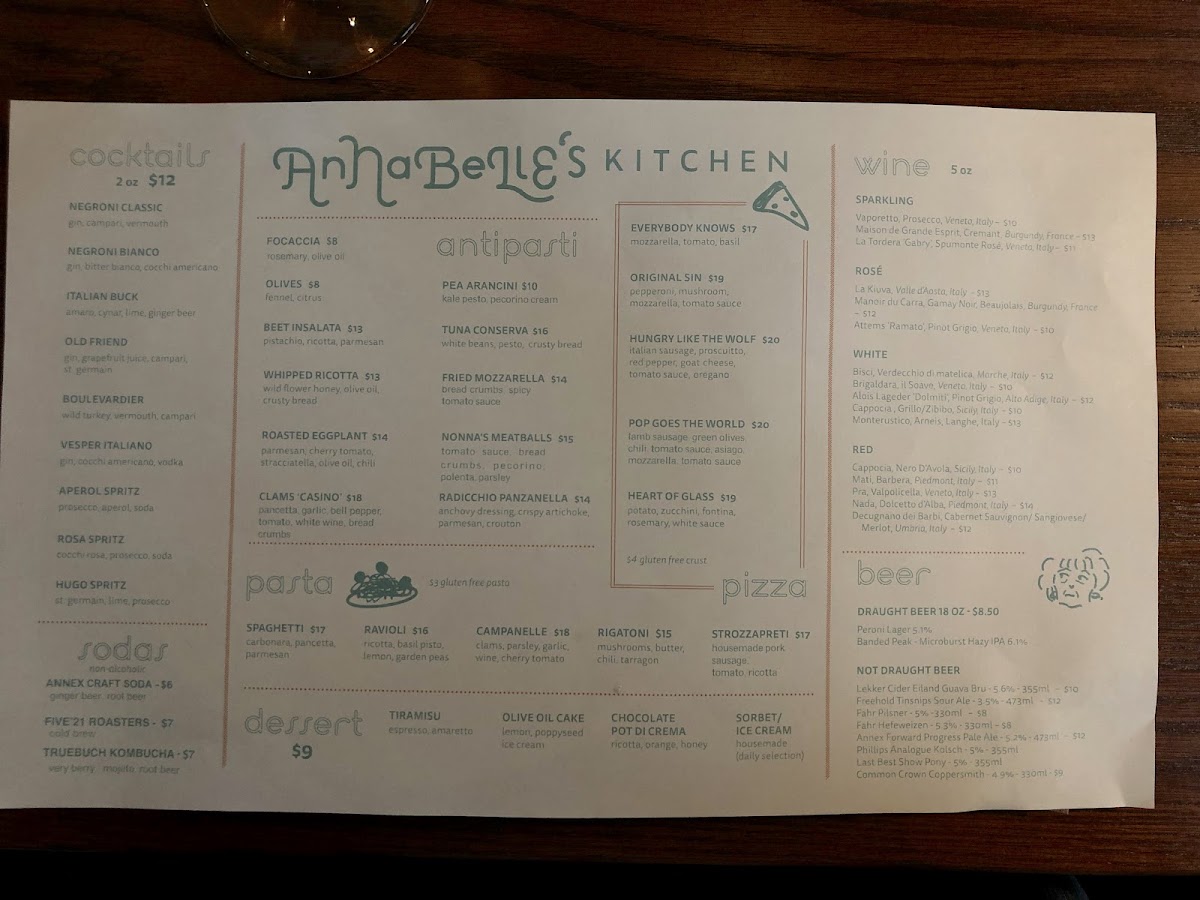 cocktails
2 oz $12
NEGRONI CLASSIC
gin, campari, vermouth
NEGRONI BIANCO
gin, bitter bianco, cocchi americano
ITALIAN BUCK
amaro, cynar, lime, ginger beer
OLD FRIEND
gin, grapefruit juice, campari,
st. germain
BOULEVARDIER
wild turkey, vermouth, campari
VESPER ITALIANO
gin, cocchi americano, vodka
APEROL SPRITZ
prosecco, aperol, soda
ROSA SPRITZ
cocchi rosa, prosecco, soda
HUGO SPRITZ
st. germain, lime, prosecco
sodas
non-alcoholic
ANNEX CRAFT SODA - $6
ginger beer, root beer
FIVE'21 ROASTERS - $7
cold brew
TRUEBUCH KOMBUCHA - $7
very berry mojito, root beer
AnnaBelle's KITCHEN
antipasti
FOCACCIA $8
rosemary, olive oil
OLIVES $8
fennel, citrus
BEET INSALATA $13
pistachio, ricotta, parmesan
WHIPPED RICOTTA $13
wild flower honey, olive oil,
crusty bread
ROASTED EGGPLANT $14
parmesan, cherry tomato,
stracciatella, olive oil, chili
CLAMS 'CASINO' $18
pancetta, garlic, bell pepper,
tomato, white wine, bread
crumbs
PEA ARANCINI $10
kale pesto, pecorino cream
TUNA CONSERVA $16
white beans, pesto, crusty bread
FRIED MOZZARELLA $14
bread crumbs, spicy
tomato sauce
NONNA'S MEATBALLS $15
tomato sauce, bread
crumbs, pecorino,
polenta, parsley
RADICCHIO PANZANELLA $14
anchovy dressing, crispy artichoke,
parmesan, crouton
EVERYBODY KNOWS $17
mozzarella, tomato, basil
ORIGINAL SIN $19
pepperoni, mushroom,
mozzarella, tomato sauce
HUNGRY LIKE THE WOLF $20
italian sausage, proscuitto,
red pepper, goat cheese,
tomato sauce, oregano
POP GOES THE WORLD $20
lamb sausage, green olives,
chili, tomato sauce, asiago,
mozzarella, tomato sauce
HEART OF GLASS $19
potato, zucchini, fontina,
rosemary, white sauce
$4 gluten free crust
pizza
pasta
$3 gluten free pasta
SPAGHETTI $17
carbonara, pancetta,
parmesan
RAVIOLI $16
ricotta, basil pisto,
lemon, garden peas
CAMPANELLE $18
clams, parsley, garlic,
wine, cherry tomato
RIGATONI $15
mushrooms, butter,
chili, tarragon
STROZZAPRETI $17
housemade pork
sausage,
tomato, ricotta
dessert
$9
TIRAMISU
espresso, amaretto
OLIVE OIL CAKE
lemon, poppyseed
ice cream
CHOCOLATE
POT DI CREMA
ricotta, orange, honey
SORBET/
ICE CREAM
housemade
(daily selection)
wine 5 oz
SPARKLING
Vaporetto, Prosecco, Veneto, Italy - $10
Maison de Grande Esprit, Cremant, Burgundy, France - $13
La Tordera 'Gabry', Spumonte Rosé, Veneto, Italy - $11
ROSÉ
La Kiuva, Valle d'Aosta, Italy - $13
Manoir du Carra, Gamay Noir, Beaujolais, Burgundy, France
- $12
Attems 'Ramato', Pinot Grigio, Veneto, Italy - $10
WHITE
Bisci, Verdecchio di matelica, Marche, Italy - $12
Brigaldara, il Soave, Veneto, Italy - $10
Alois Lageder 'Dolmiti', Pinot Grigio, Alto Adige, Italy - $12
Cappocia , Grillo/Zibibo, Sicily, Italy - $10
Monterustico, Arneis, Langhe, Italy - $13
RED
Cappocia, Nero D'Avola, Sicily, Italy - $10
Mati, Barbera, Piedmont, Italy - $11
Pra, Valpolicella, Veneto, Italy - $13
Nada, Dolcetto d'Alba, Piedmont, Italy - $14
Decugnano dei Barbi, Cabernet Sauvignon/ Sangiovese/
Merlot, Umbria, Italy - $12
beer
DRAUGHT BEER 18 OZ - $8.50
Peroni Lager 5.1%
Banded Peak - Microburst Hazy IPA 6.1%
NOT DRAUGHT BEER
Lekker Cider Eiland Guava Bru - 5.6% - 355ml - $10
Freehold Tinsnips Sour Ale - 3.5% - 473ml - $12
Fahr Pilsner - 5% - 330ml - $8
Fahr Hefeweizen - 5.3% - 330ml - $8
Annex Forward Progress Pale Ale - 5.2% - 473ml - $12
Phillips Analogue Kolsch - 5% - 355ml
Last Best Show Pony - 5% - 355ml
Common Crown Coppersmith - 4.9% - 330ml - $9